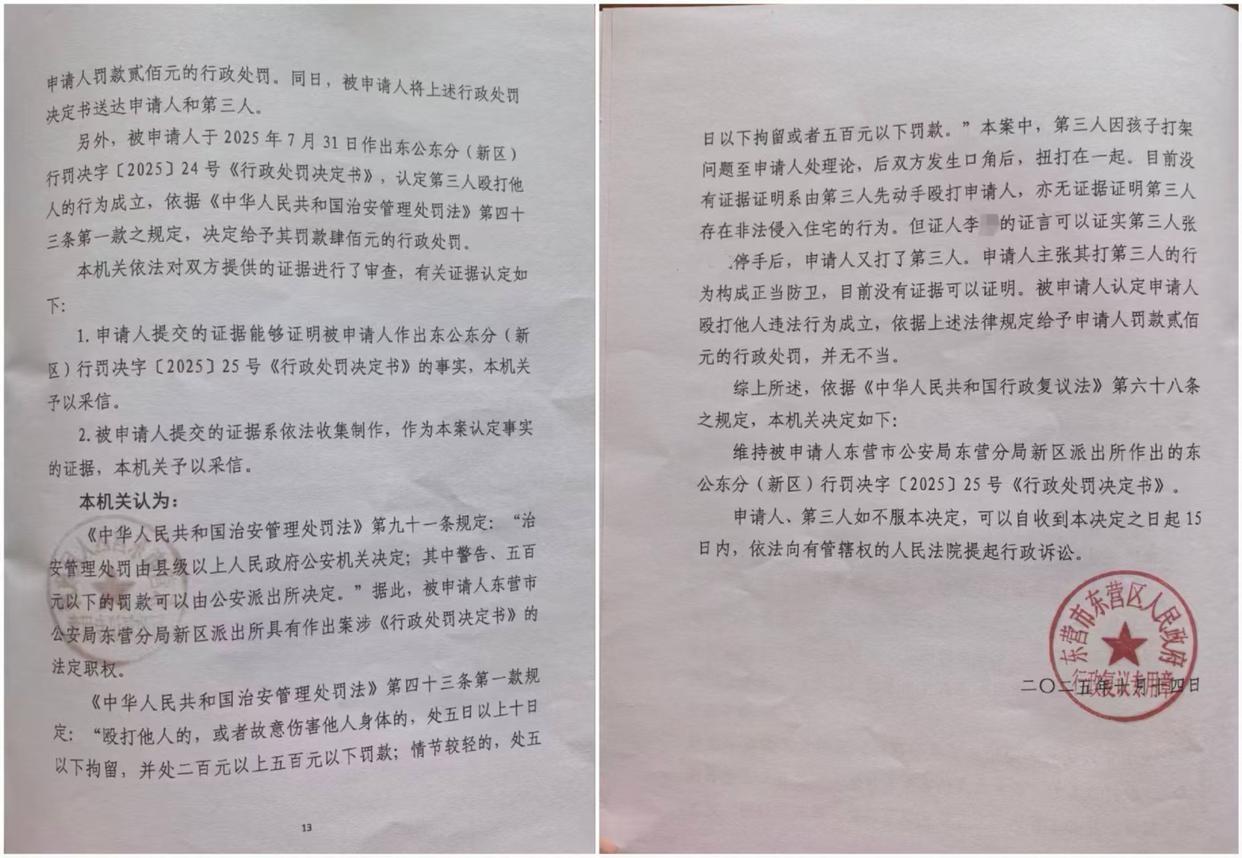 申请人罚款贰佰元的行政处罚。同日，被申请人将上述行政处罚
决定书送达申请人和第三人。
另外，被申请人于2025年7月31日作出东公东分（新区）
行罚决字〔2025〕24号《行政处罚决定书》，认定第三人殴打他
人的行为成立，依据《中华人民共和国治安管理处罚法》第四十
三条第一款之规定，决定给予其罚款肆佰元的行政处罚。
本机关依法对双方提供的证据进行了审查，有关证据认定如
下：
1.申请人提交的证据能够证明被申请人作出东公东分（新
区）行罚决字〔2025〕25号《行政处罚决定书》的事实，本机关
予以采信。
2.被申请人提交的证据系依法收集制作，作为本案认定事实
的证据，本机关予以采信。
本机关认为：
《中华人民共和国治安管理处罚法》第九十一条规定：“治
安管理处罚由县级以上人民政府公安机关决定；其中警告、五百
元以下的罚款可以由公安派出所决定。”据此，被申请人东营市
公安局东营分局新区派出所具有作出案涉《行政处罚决定书》的
法定职权。
《中华人民共和国治安管理处罚法》第四十三条第一款规
定：“殴打他人的，或者故意伤害他人身体的，处五日以上十日
以下拘留，并处二百元以上五百元以下罚款；情节较轻的，处五
13
日以下拘留或者五百元以下罚款。”本案中，第三人因孩子打架
问题至申请人处理论，后双方发生口角后，扭打在一起。目前没
有证据证明系由第三人先动手殴打申请人，亦无证据证明第三人
存在非法侵入住宅的行为。但证人李 的证言可以证实第三人张
停手后，申请人又打了第三人。申请人主张其打第三人的行
为构成正当防卫，目前没有证据可以证明。被申请人认定申请人
殴打他人违法行为成立，依据上述法律规定给予申请人罚款贰佰
元的行政处罚，并无不当。
综上所述，依据《中华人民共和国行政复议法》第六十八条
之规定，本机关决定如下：
维持被申请人东营市公安局东营分局新区派出所作出的东
公东分（新区）行罚决字〔2025〕25号《行政处罚决定书》。
申请人、第三人如不服本决定，可以自收到本决定之日起15
日内，依法向有管辖权的人民法院提起行政诉讼。
东营市东营区人民政府
行政复议专用章
二〇二五年十月 四日